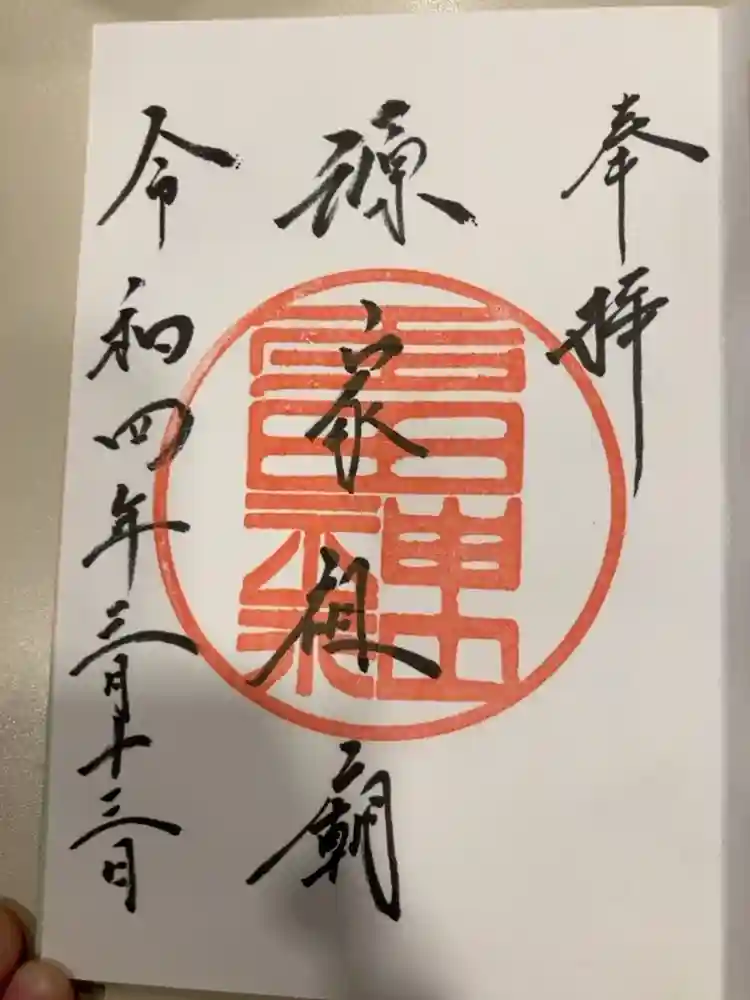 奉拝
源家祖廟
令和四年三月十三日